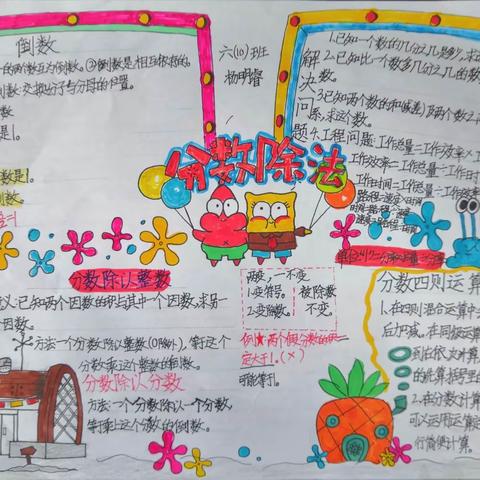 倒数
的两个数互为倒数。②倒数是相互依存的。
倒数:交换分子与分母的位置。
数
是1。
数是1。
倒数。
六(10)班
杨明睿
解决问题
1.已知一个数的几分之几是多少,求
2.已知比一个数多几分之几的数
3.已知两个数的和(或差)及两个数之
系,求这个数。
4.工程问题:工作总量=工作效率×工
工作效率=工作总量÷工作时
工作时间=工作总量÷工作
路程=速度×时间
时间=路程÷速度
速度=路程÷时间
分数除法
分数除以整数
义:已知两个因数的积与其中一个因数,求另一
个因数。
方法:一个分数除以整数(0除外),等于这个
分数乘这个整数的倒数。
分数除以分数
方法:一个分数除以一个分数,
等于乘上这个分数的倒数。
两变,一不变
1.变符号。
2.变除数。
被除数
不变。
例★两个假分数的
定大于1。(×)
可能等于1。
分数四则运算
1.在四则混合运算中
后加减,在同级运算
到右依次计算
的先算括号里
2.在分数计算
可以运用运算
行简便计算。